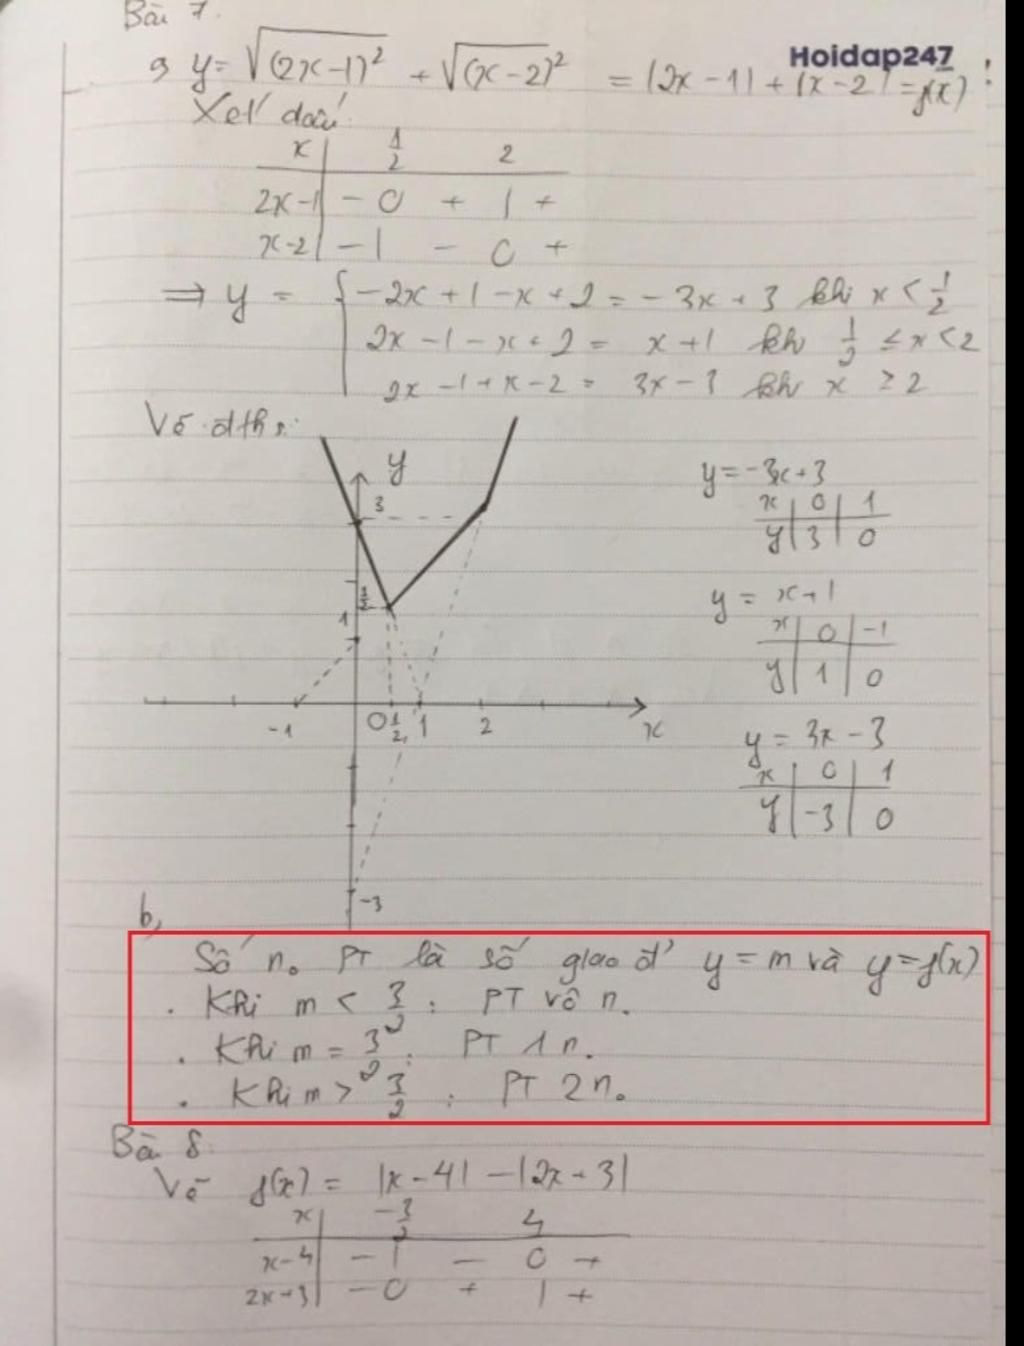 Bài 7.
a, y = √(2x-1)² + √(x-2)² = |2x-1| + |x-2| = f(x)
Hoidap247
Xét dấu:
x | 1/2 2
2x-1 | - 0 + | +
x-2 | - | - 0 +
=> y = { -2x+1-x+2 = -3x+3 khi x < 1/2
2x-1-x+2 = x+1 kh 1/2 ≤ x < 2
2x-1+x-2 = 3x-3 kh x ≥ 2
Vẽ đths:
y
3
3/2
1
-1 O 1/2 1 2 x
-3
y = -3x+3
x | 0 | 1
y | 3 | 0
y = x+1
x | 0 | -1
y | 1 | 0
y = 3x-3
x | 0 | 1
y | -3 | 0
b,
Số n₀ PT là số giao đ' y = m và y = f(x)
. Khi m < 3/2 : PT vô n₀
. Khi m = 3/2 : PT 1 n₀
. Khi m > 3/2 : PT 2 n₀
Bài 8.
Vẽ f(x) = |x-4| - |2x+3|
x | -3/2 4
x-4 | - | - 0 +
2x+3 | - 0 + | +